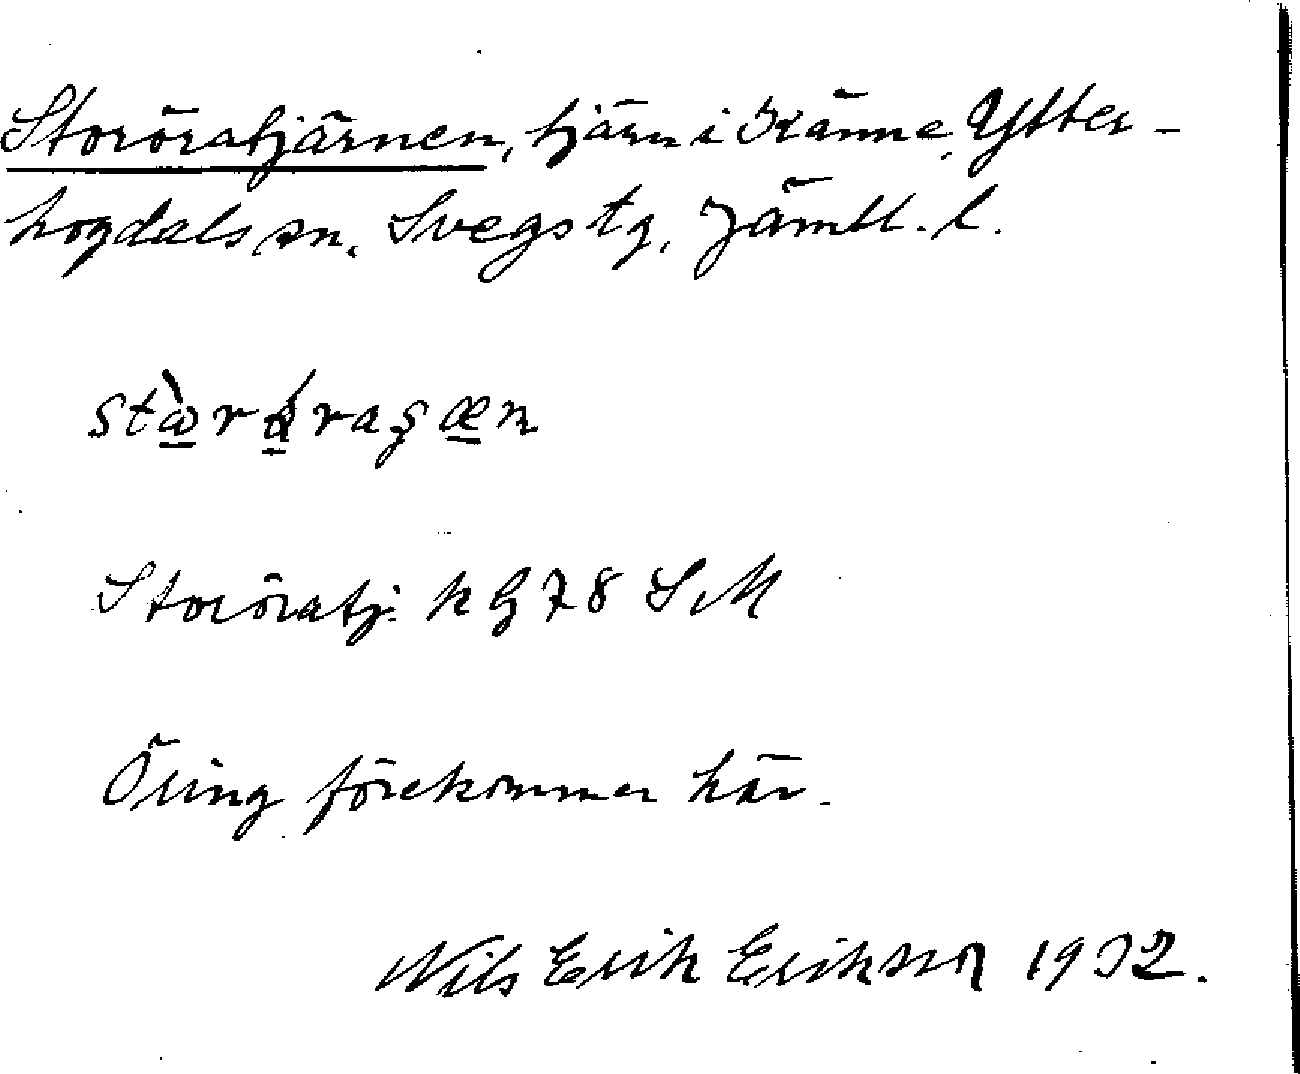 Storöratjärnen, tjärn i Kränne, Ytter-
hogdals sn. Svegs tg, Jämtl. l.
Storöratj. kG 78 S M
Öring förekommer här.
Nils Erik Erikson 1932.